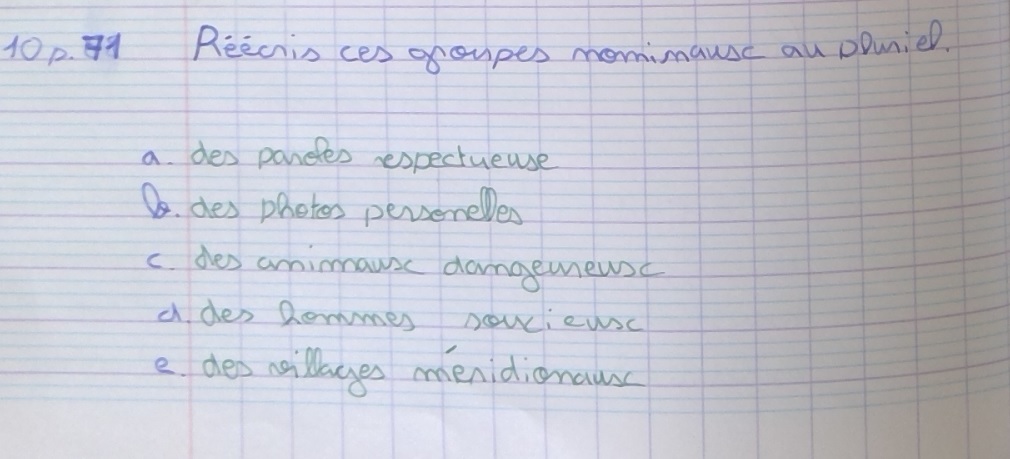 10 p. 71 Réécris ces groupes nominaux au pluriel.
a. des paroles respectueuse
b. des photos personelles
c. des animaux dangeureux
d. des hommes soucieux
e. des villages méridionaux